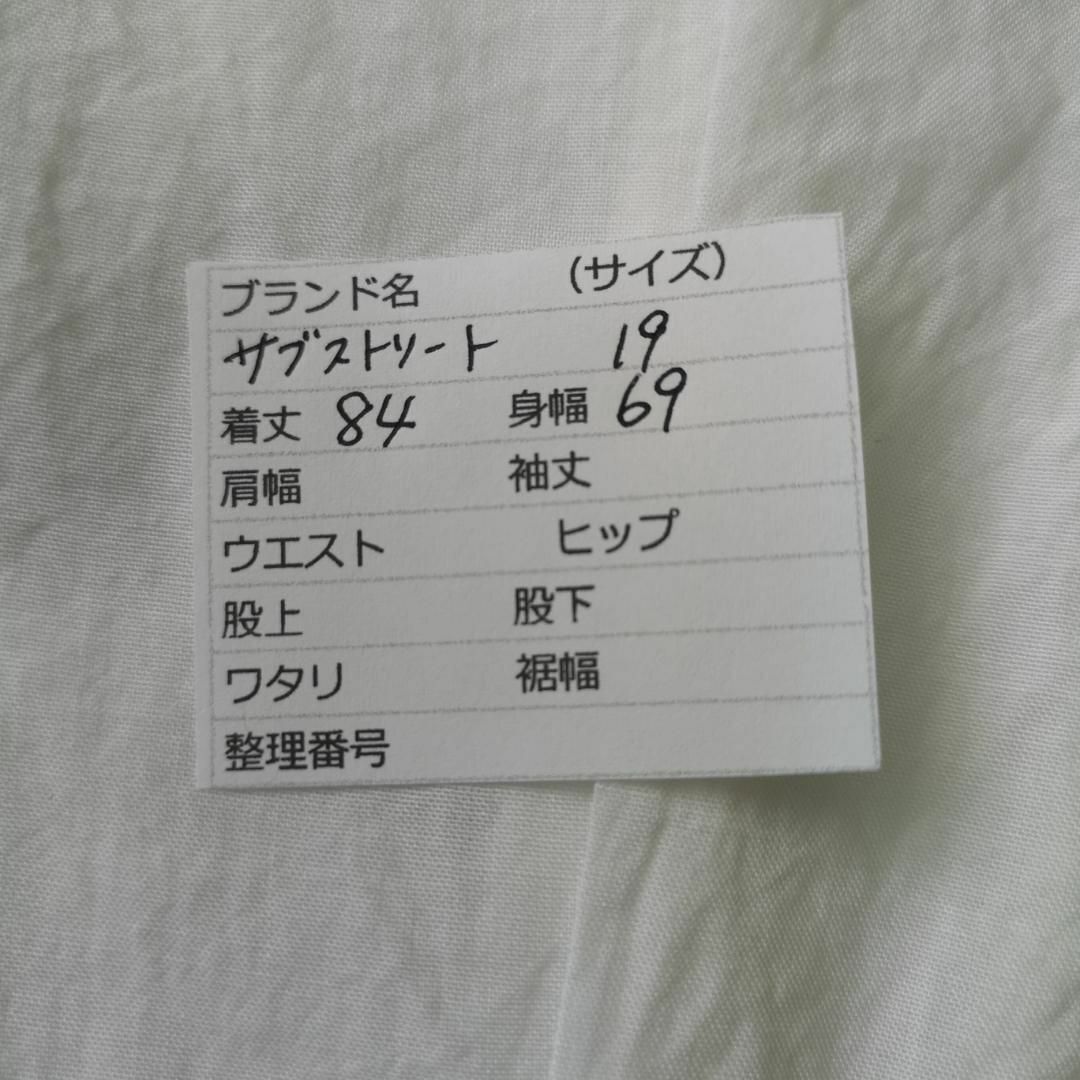 ブランド名 (サイズ)
サブストリート 19
着丈 84 身幅 69
肩幅 袖丈
ウエスト ヒップ
股上 股下
ワタリ 裾幅
整理番号